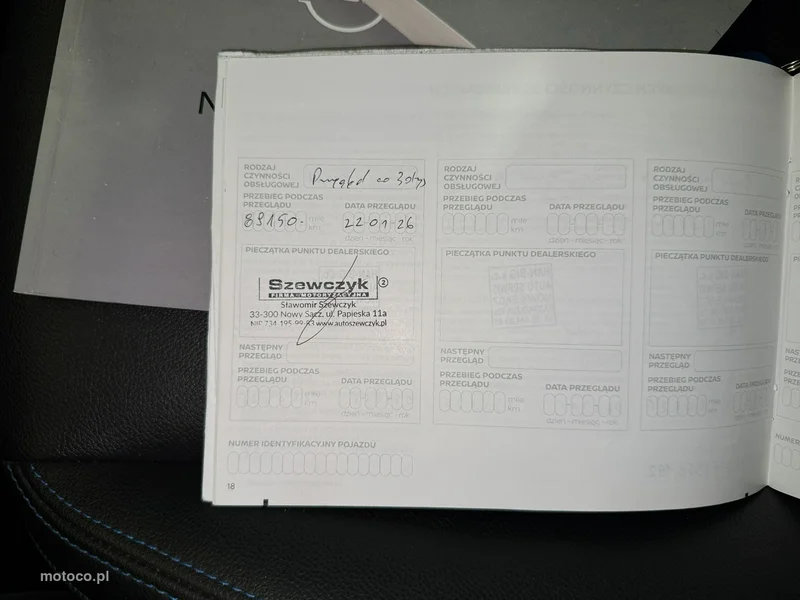 N
RODZAJ
CZYNNOŚCI
OBSŁUGOWEJ
Przegląd co 30tys
PRZEBIEG PODCZAS
PRZEGLĄDU
DATA PRZEGLĄDU
89150.-
mile
km
22-01-26
dzień - miesiąc - rok
PIECZĄTKA PUNKTU DEALERSKIEGO
Szewczyk 2
FIRMA MOTORYZACYJNA
Sławomir Szewczyk
33-300 Nowy Sącz, ul. Papieska 11a
NIP 734-195-99-83 www.autoszewczyk.pl
NASTĘPNY
PRZEGLĄD
PRZEBIEG PODCZAS
PRZEGLĄDU
DATA PRZEGLĄDU
mile
km
dzień - miesiąc - rok
NUMER IDENTYFIKACYJNY POJAZDU
18
RODZAJ
CZYNNOŚCI
OBSŁUGOWEJ
PRZEBIEG PODCZAS
PRZEGLĄDU
DATA PRZEGLĄDU
mile
km
dzień - miesiąc - rok
PIECZĄTKA PUNKTU DEALERSKIEGO
NASTĘPNY
PRZEGLĄD
PRZEBIEG PODCZAS
PRZEGLĄDU
DATA PRZEGLĄDU
mile
km
dzień - miesiąc - rok
RODZAJ
CZYNNOŚCI
OBSŁUGOWEJ
PRZEBIEG PODCZAS
PRZEGLĄDU
DATA
mile
km
PIECZĄTKA PUNKTU DEALERSKIEGO
NASTĘPNY
PRZEGLĄD
PRZEBIEG PODCZAS
PRZEGLĄDU
DATA
mile
km
NUME
motoco.pl